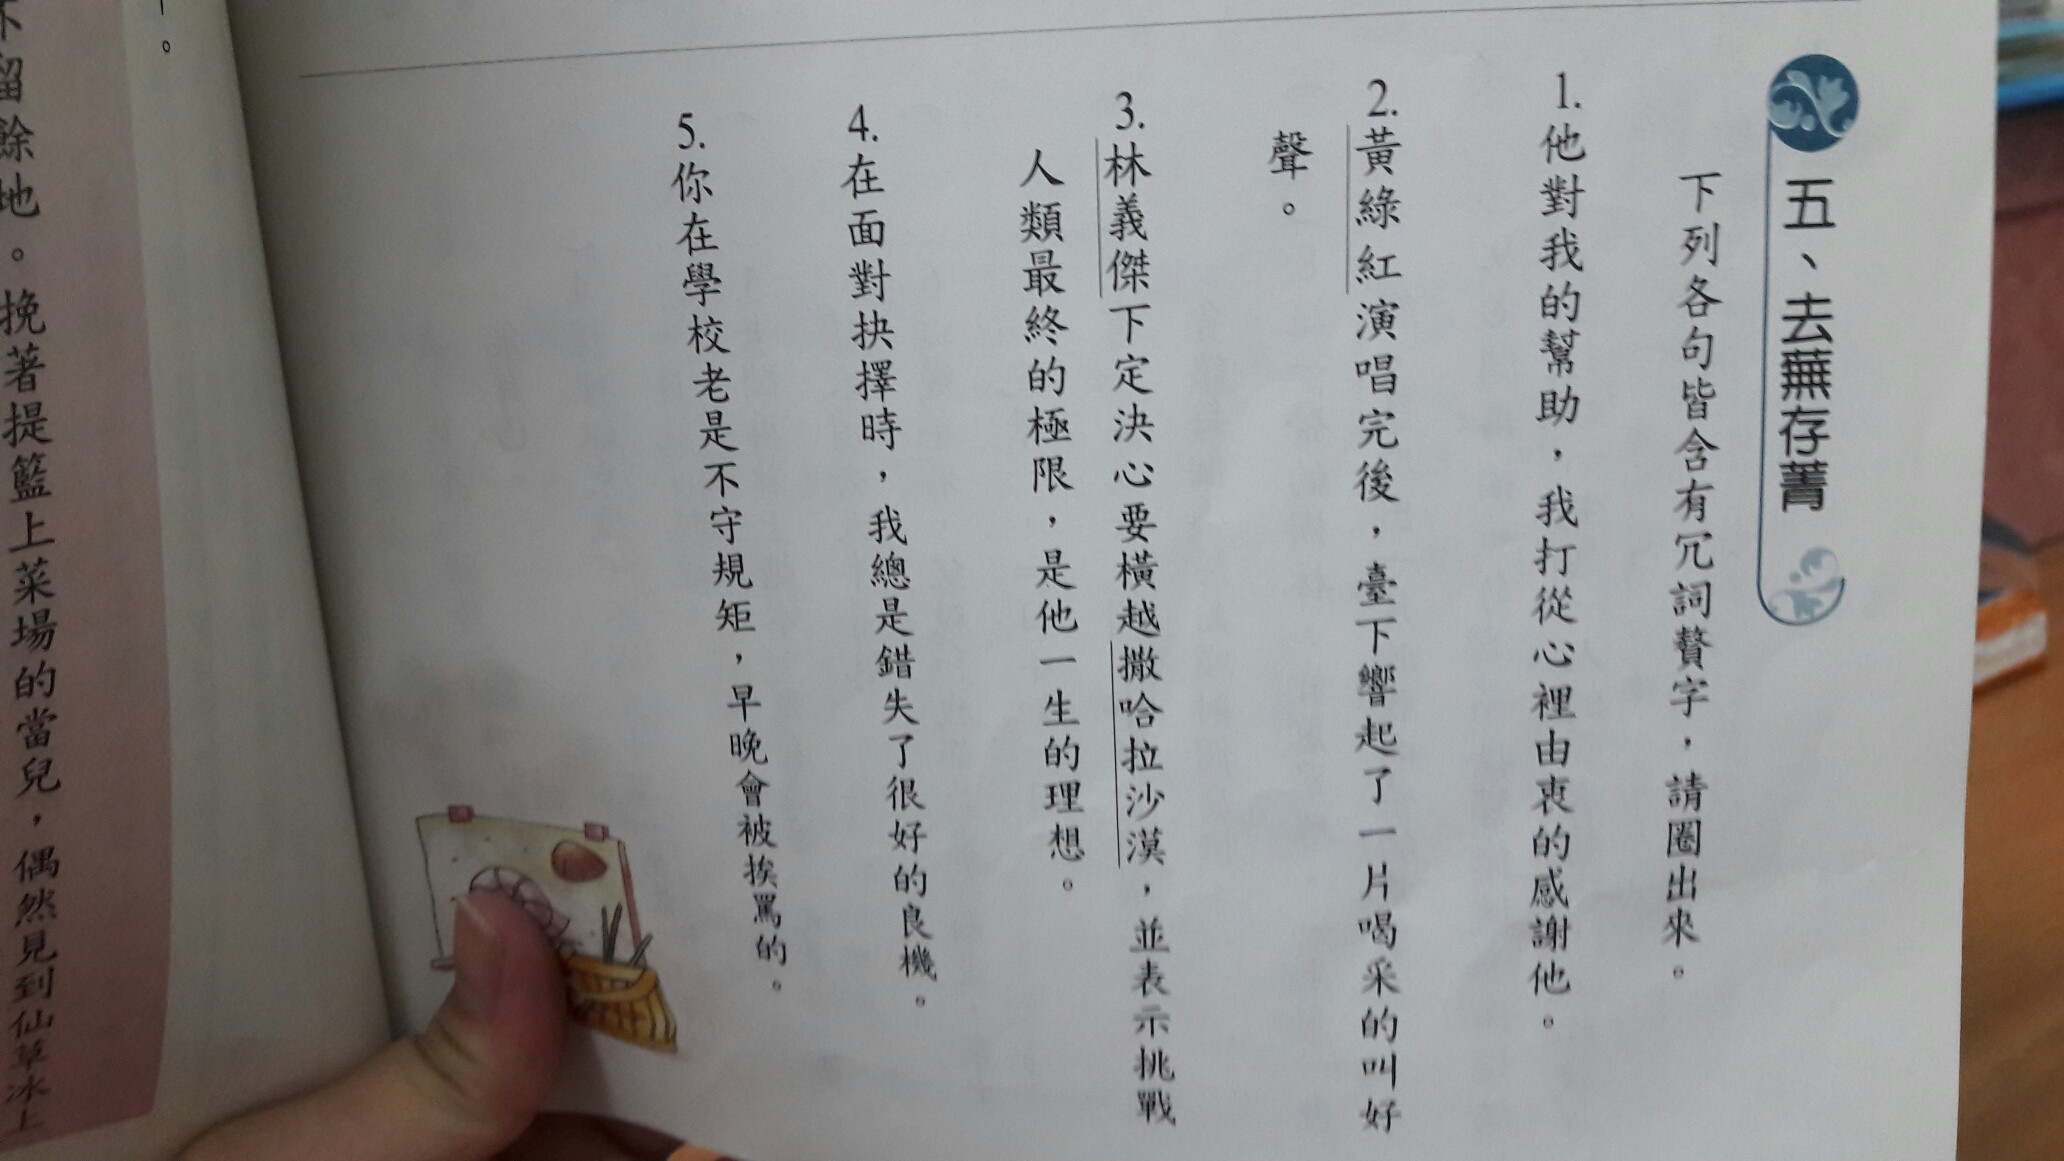 五、去蕪存菁
下列各句皆含有冗詞贅字，請圈出來。
1.他對我的幫助，我打從心裡由衷的感謝他。
2.黃綠紅演唱完後，臺下響起了一片喝采的叫好
聲。
3.林義傑下定決心要橫越撒哈拉沙漠，並表示挑戰
人類最終的極限，是他一生的理想。
4.在面對抉擇時，我總是錯失了很好的良機。
5.你在學校老是不守規矩，早晚會被挨罵的。
。
不留餘地。挽著提籃上菜場的當兒，偶然見到仙草冰上